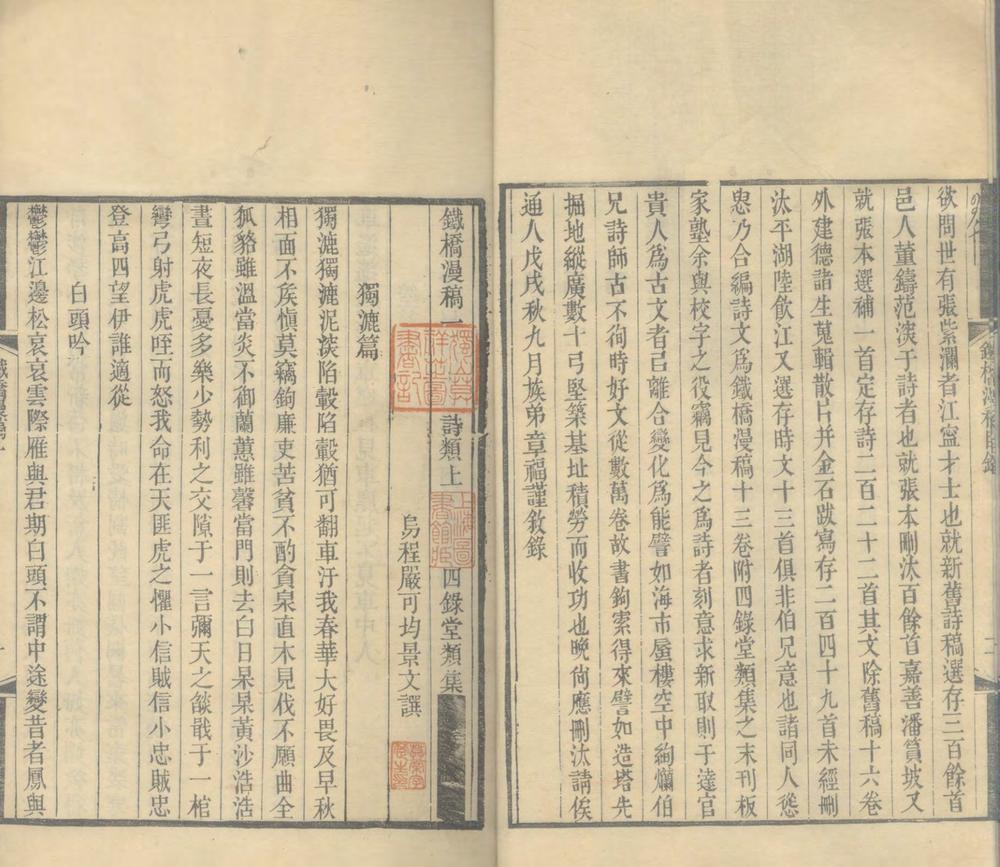 欲問世有張紫瀾者江寍才士也就新舊詩稿選存三百餘首
邑人董鑄范淡于詩者也就張本刪汰百餘首嘉善潘篔坡又
就張本選補一首定存詩二百二十二首其文除舊稿十六卷
外建德諸生蒐輯散片并金石跋寫存二百四十九首未經刪
汰平湖陸飲江又選存時文十三首俱非伯兄意也諸同人慫
恿乃合編詩文為鐵橋漫稿十三卷附四錄堂類集之末刊板
家塾余與校字之役竊見今之為詩者刻意求新取則于達官
貴人為古文者㠯離合變化為能譬如海市蜃樓空中絢爛伯
兄詩師古不徇時好文從數萬卷故書鉤索得來譬如造塔先
掘地縱廣數十弓堅築基址積勞而收功也晚尙應刪汰請俟
通人戊戌秋九月族弟章福謹敘錄
鐵橋漫稿一 詩類上 四錄堂類集
烏程嚴可均景文譔
獨漉篇
獨漉獨漉泥淡陷轂陷轂猶可翻車汙我春華大好畏及早秋
相面不矦愼莫竊鉤廉吏苦貧不酌貪泉直木見伐不願曲全
狐貉雖溫當炎不御蘭蕙雖馨當門則去白日杲杲黃沙浩浩
晝短夜長憂多樂少勢利之交隙于一言彌天之燄戢于一棺
彎弓射虎虎咥而怒我命在天匪虎之懼小信賊信小忠賊忠
登高四望伊誰適從
白頭吟
鬱鬱江邊松哀哀雲際雁與君期白頭不謂中途變昔者鳳與